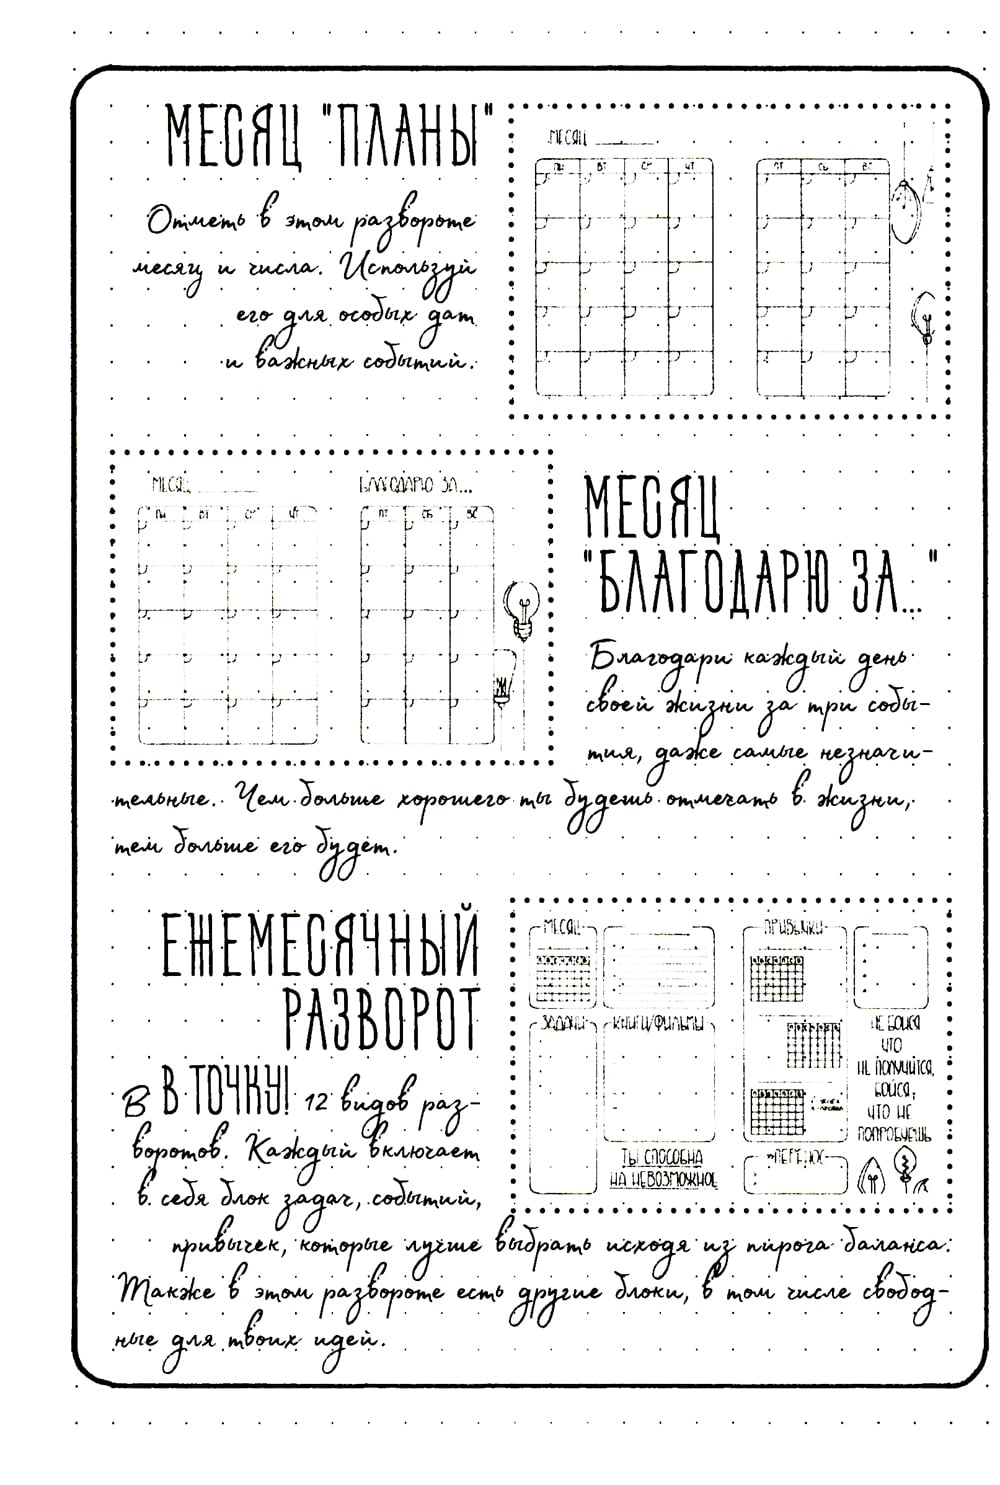 МЕСЯЦ "ПЛАНЫ"
Отметь в этом развороте
месяц и числа. Используй
его для особых дат
и важных событий.
МЕСЯЦ
ПН ВТ СР ЧТ ПТ СБ ВС
МЕСЯЦ БЛАГОДАРЮ ЗА...
ПН ВТ СР ЧТ ПТ СБ ВС
МЕСЯЦ
"БЛАГОДАРЮ ЗА..."
Благодари каждый день
своей жизни за три собы-
тия, даже самые незначи-
тельные. Чем больше хорошего ты будешь отмечать в жизни,
тем больше его будет.
ЕЖЕМЕСЯЧНЫЙ
РАЗВОРОТ
В В ТОЧКУ! 12 видов раз-
воротов. Каждый включает
в себя блок задач, событий,
привычек, которые лучше выбрать исходя из пирога баланса.
Также в этом развороте есть другие блоки, в том числе свобод-
ные для твоих идей.
МЕСЯЦ
ПРИВЫЧКИ
ЗАДАЧИ
КНИГИ/ФИЛЬМЫ
НЕ БОЙСЯ
ЧТО
НЕ ПОЛУЧИТСЯ,
БОЙСЯ,
ЧТО НЕ
ПОПРОБУЕШЬ
ТЫ СПОСОБНА
НА НЕВОЗМОЖНОЕ
ПЕРЕНОС